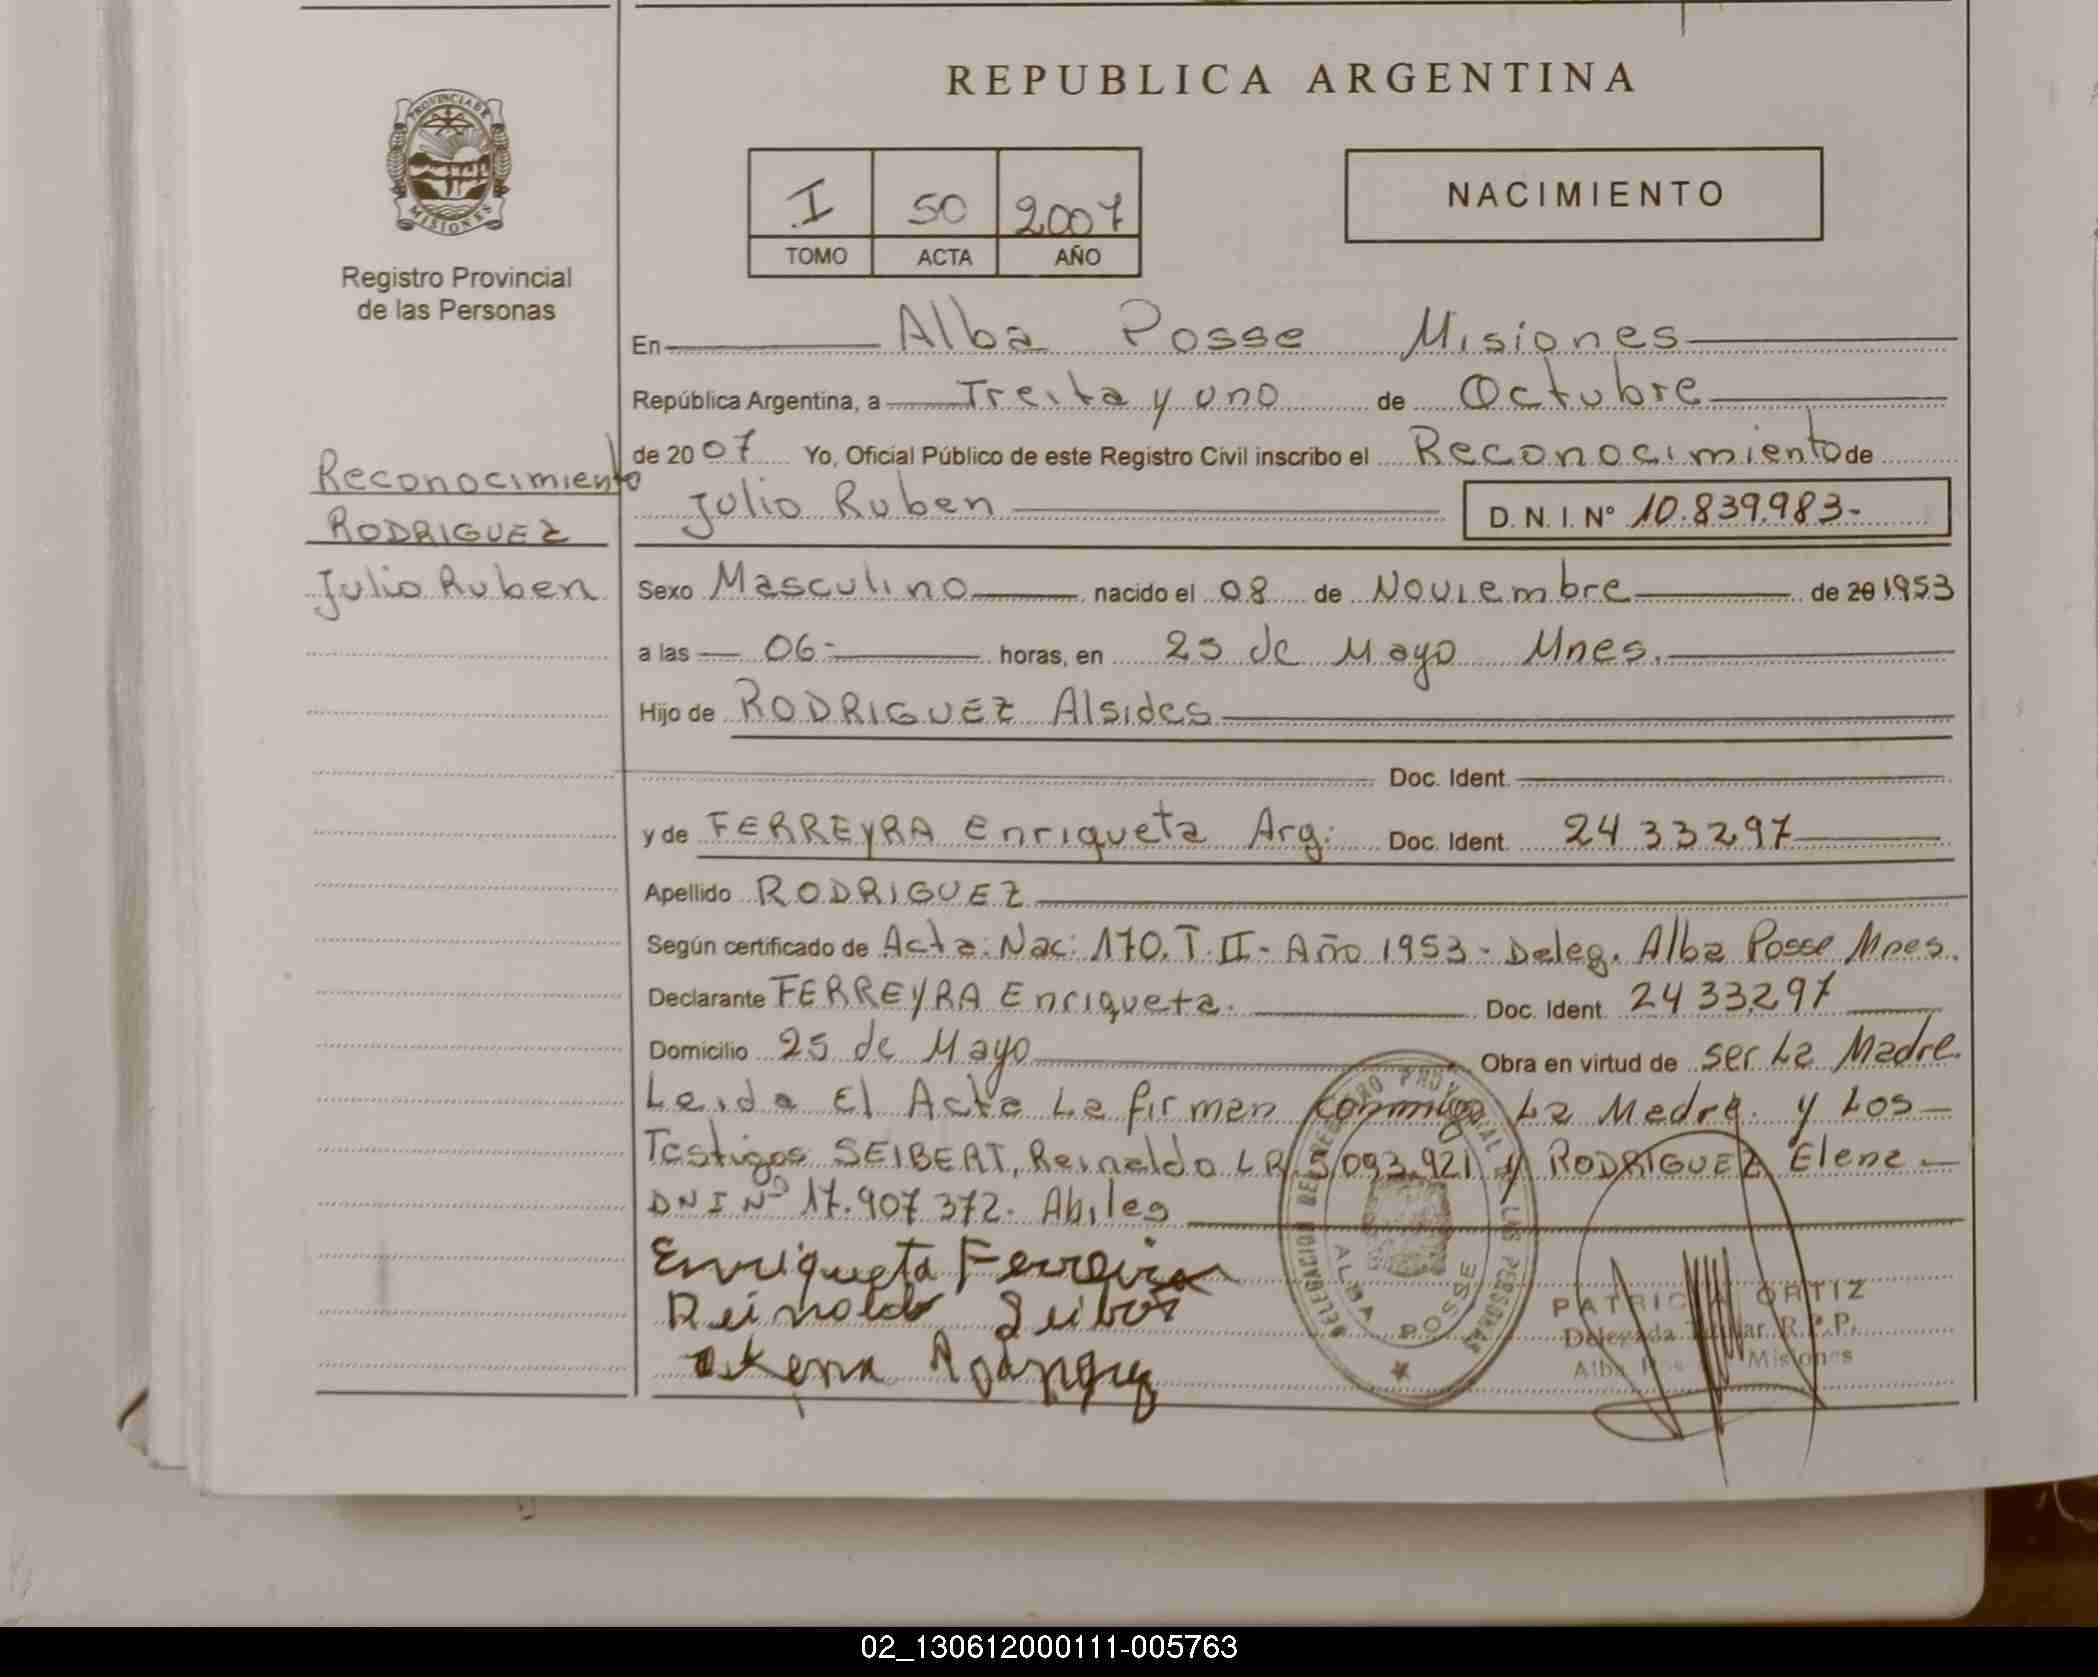 REPUBLICA ARGENTINA
PROVINCIA DE
MISIONES
Registro Provincial
de las Personas
I 50 2007
TOMO ACTA AÑO
NACIMIENTO
En Alba Posse Misiones
República Argentina, a Treita y uno de Octubre
de 2007 Yo, Oficial Público de este Registro Civil inscribo el Reconocimiento de
Julio Ruben D.N.I. N° 10.839.983-
Reconocimiento
RODRIGUEZ
Julio Ruben
Sexo Masculino nacido el 08 de Noviembre de 20 1953
a las 06- horas, en 25 de Mayo Mnes.
Hijo de RODRIGUEZ Alsides
Doc. Ident.
y de FERREYRA Enriqueta Arg: Doc. Ident. 24 33297
Apellido RODRIGUEZ
Según certificado de Acta: Nac: 170. T. II - Año 1953 - Deleg. Alba Posse Mnes.
Declarante FERREYRA Enriqueta. Doc. Ident. 24 33297
Domicilio 25 de Mayo Obra en virtud de ser La Madre.
Leida El Acta La firman conmigo La Madre. y Los
Testigos SEIBERT, Reinaldo LR 5.093.921 y RODRIGUEZ Elena
DNI N° 17.907 372. Abiles
Enriqueta Ferreira
Reinoldo
DELEGACION DEL REGISTRO PROVINCIAL DE LAS PERSONAS
ALBA POSSE
PATRICIA ORTIZ
Delegada Titular R.P.P.
Alba Posse Misiones
02_130612000111-005763